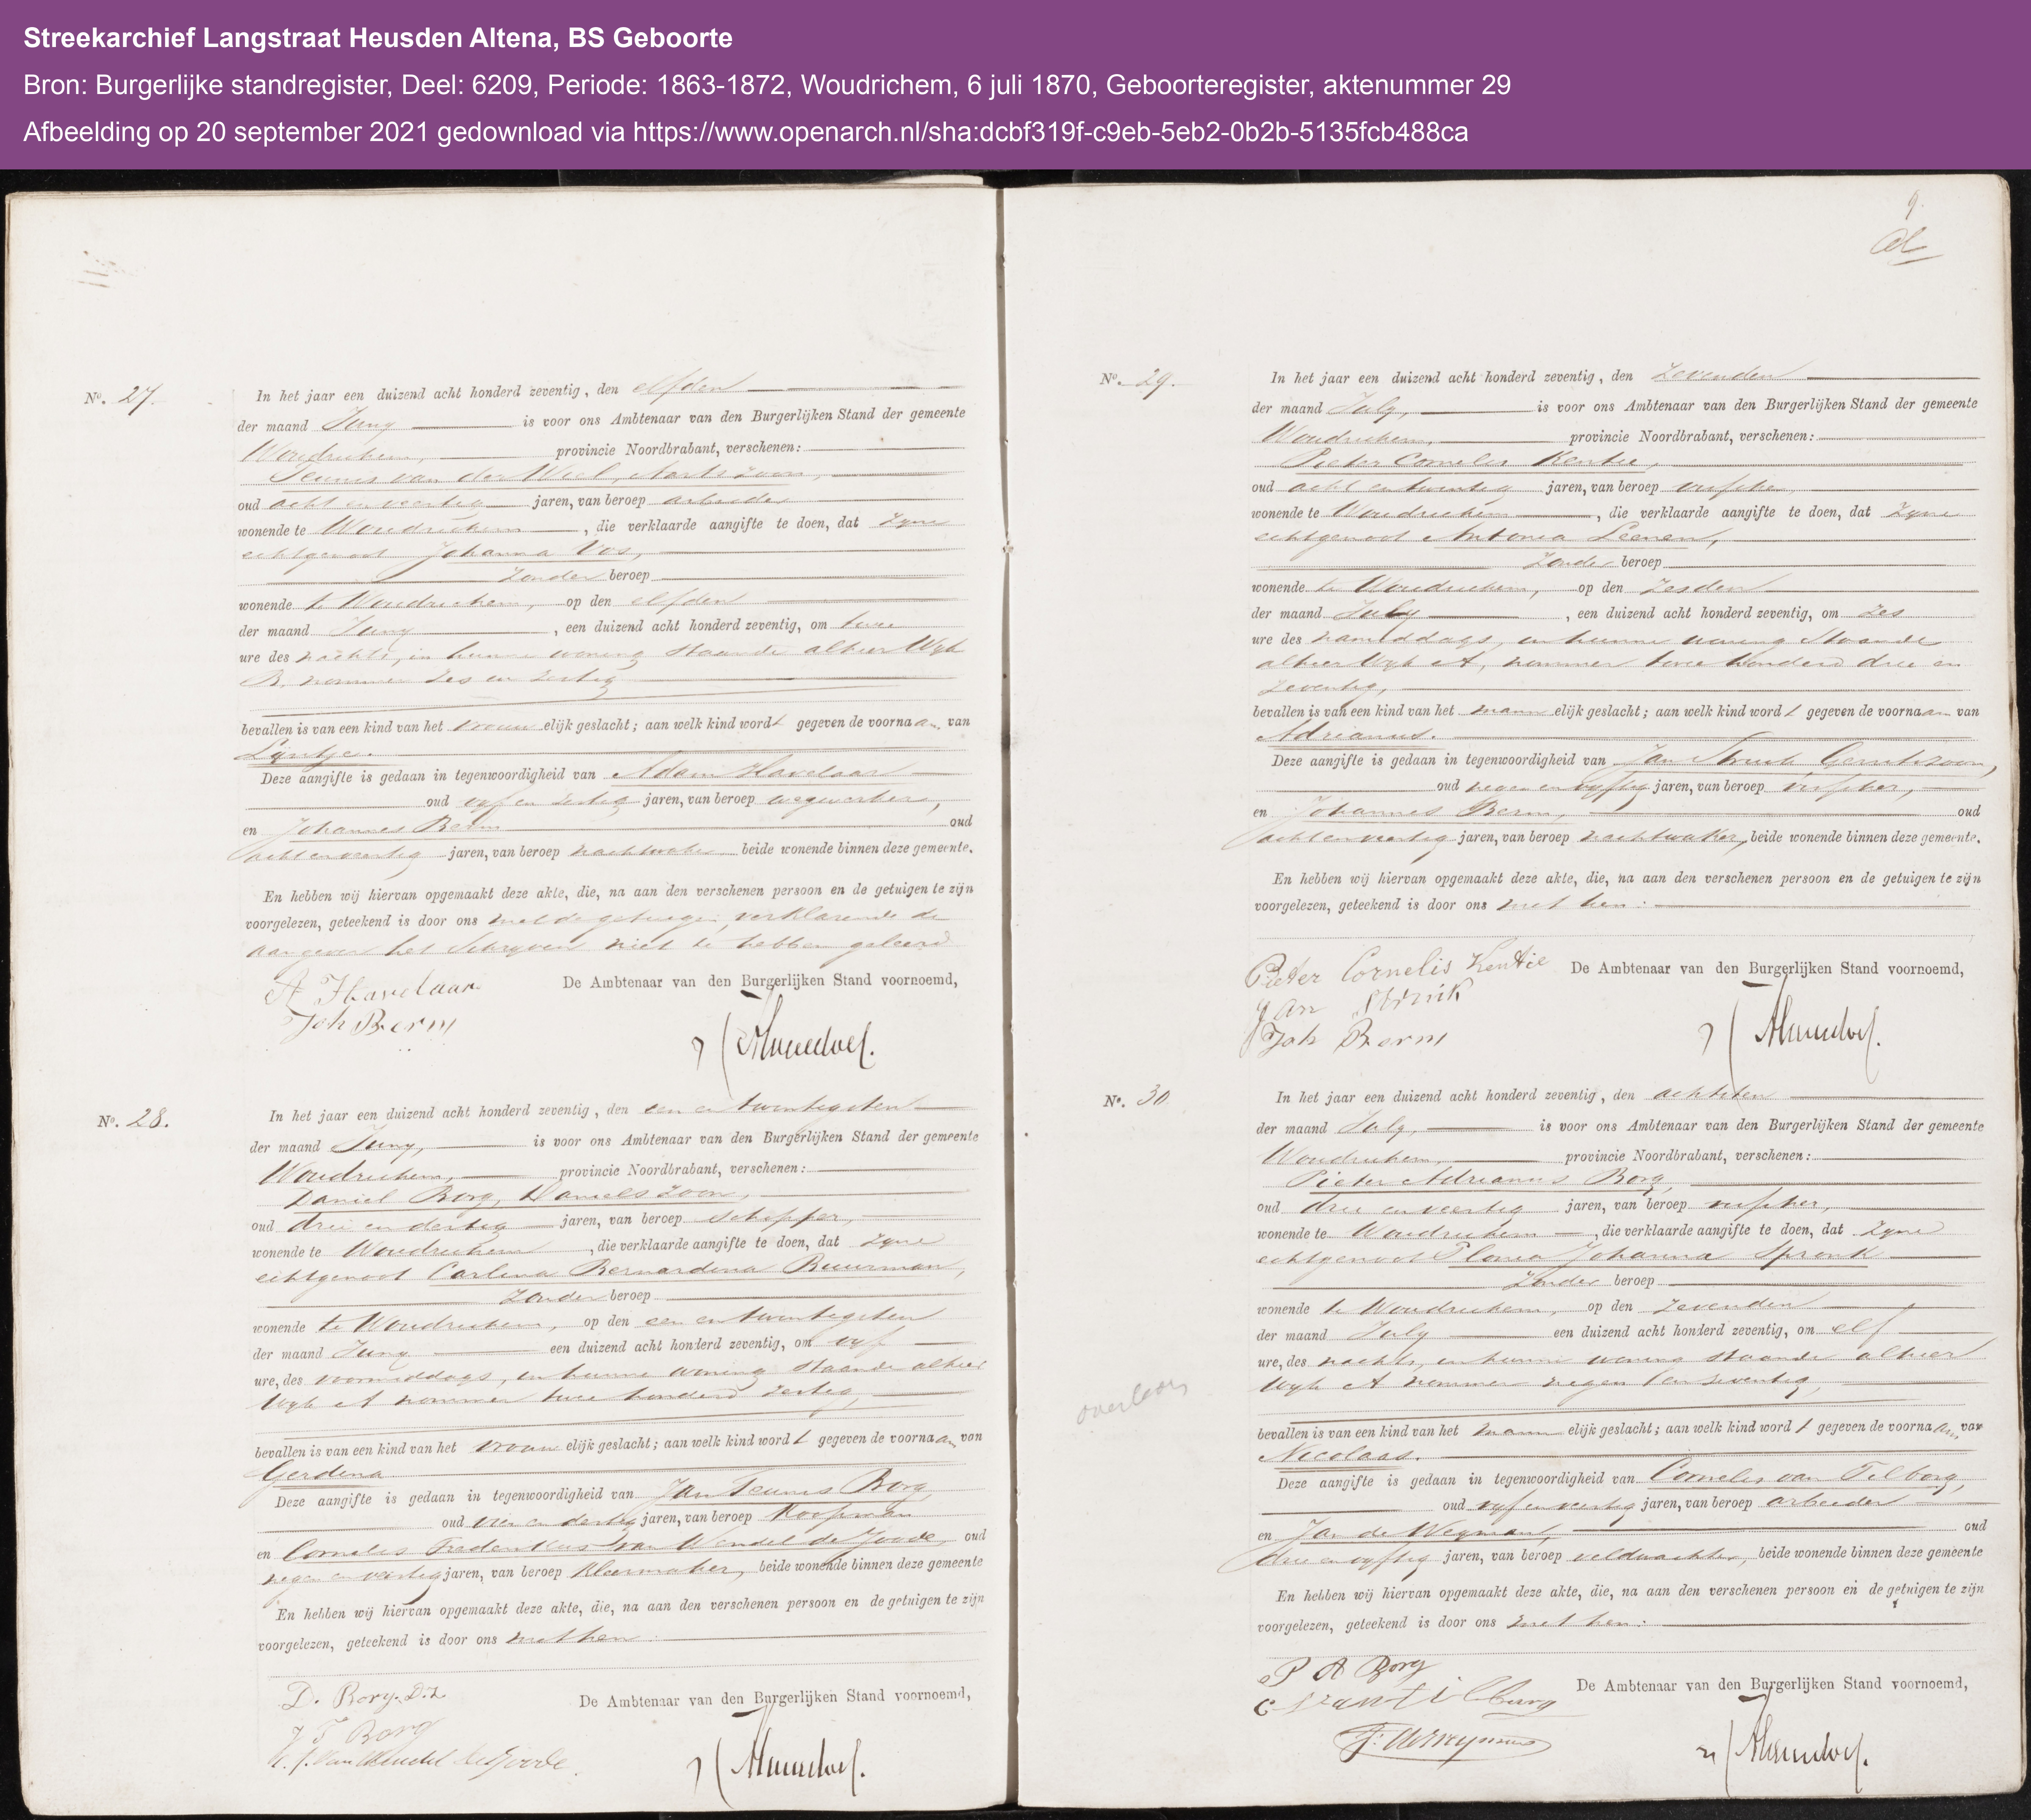 Streekarchief Langstraat Heusden Altena, BS Geboorte
Bron: Burgerlijke standregister, Deel: 6209, Periode: 1863-1872, Woudrichem, 6 juli 1870, Geboorteregister, aktenummer 29
Afbeelding op 20 september 2021 gedownload via https://www.openarch.nl/sha:dcbf319f-c9eb-5eb2-0b2b-5135fcb488ca
No. 27.
In het jaar een duizend acht honderd zeventig, den elfden
der maand Juny is voor ons Ambtenaar van den Burgerlijken Stand der gemeente
Woudrichem, provincie Noordbrabant, verschenen:
Teunis van der Wiel, Aartszoon,
oud acht en veertig jaren, van beroep arbeider
wonende te Woudrichem, die verklaarde aangifte te doen, dat zyne
echtgenoot Johanna Vos,
zonder beroep
wonende te Woudrichem, op den elfden
der maand Juny, een duizend acht honderd zeventig, om twee
ure des nachts, in hunne woning staande alhier Wyk
B. nommer zes en zestig
bevallen is van een kind van het vrouwelijk geslacht; aan welk kind wordt gegeven de voornaam van
Lyntje.
Deze aangifte is gedaan in tegenwoordigheid van Adam Havelaar
oud vyf en zestig jaren, van beroep wegwerker,
en Johannes Berm oud
acht en veertig jaren, van beroep nachtwaker beide wonende binnen deze gemeente.
En hebben wij hiervan opgemaakt deze akte, die, na aan den verschenen persoon en de getuigen te zijn
voorgelezen, geteekend is door ons met de getuigen, verklarende de
aangever het schryven niet te hebben geleerd
De Ambtenaar van den Burgerlijken Stand voornoemd,
A Havelaar
Joh Berm
No. 28.
In het jaar een duizend acht honderd zeventig, den een en twintigsten
der maand Juny, is voor ons Ambtenaar van den Burgerlijken Stand der gemeente
Woudrichem, provincie Noordbrabant, verschenen:
Daniel Borg, Danielszoon,
oud drie en dertig jaren, van beroep schipper,
wonende te Woudrichem, die verklaarde aangifte te doen, dat zyne
echtgenoot Carlina Bernardina Buurman,
zonder beroep
wonende te Woudrichem, op den een en twintigsten
der maand Juny een duizend acht honderd zeventig, om vyf
ure, des voormiddags, in hunne woning staande alhier
Wyk A nommer twee honderd zestig,
bevallen is van een kind van het vrouwelijk geslacht; aan welk kind wordt gegeven de voornaam van
Gerdina
Deze aangifte is gedaan in tegenwoordigheid van Jan Teunis Borg
oud vier en dertig jaren, van beroep Koopman
en Cornelis Frederikus van Wendel de Joode, oud
negen en veertig jaren, van beroep Kleermaker, beide wonende binnen deze gemeente
En hebben wij hiervan opgemaakt deze akte, die, na aan den verschenen persoon en de getuigen te zijn
voorgelezen, geteekend is door ons met hen:
De Ambtenaar van den Burgerlijken Stand voornoemd,
D. Borg. D.Z
J T Borg
van Wendel de Joode.
9.
No. 29.
In het jaar een duizend acht honderd zeventig, den zevenden
der maand July, is voor ons Ambtenaar van den Burgerlijken Stand der gemeente
Woudrichem, provincie Noordbrabant, verschenen:
Pieter Cornelis Kentie,
oud acht en twintig jaren, van beroep visscher,
wonende te Woudrichem, die verklaarde aangifte te doen, dat zyne
echtgenoot Antonia Leenen,
zonder beroep
wonende te Woudrichem, op den zesden
der maand July, een duizend acht honderd zeventig, om zes
ure des namiddags, in hunne woning staande
alhier Wyk A, nommer twee honderd drie en
zeventig,
bevallen is van een kind van het mannelijk geslacht; aan welk kind wordt gegeven de voornaam van
Adrianus.
Deze aangifte is gedaan in tegenwoordigheid van Jan Struik Gerritszoon,
oud negen en vyftig jaren, van beroep visscher,
en Johannes Berm, oud
acht en veertig jaren, van beroep nachtwaker, beide wonende binnen deze gemeente.
En hebben wij hiervan opgemaakt deze akte, die, na aan den verschenen persoon en de getuigen te zijn
voorgelezen, geteekend is door ons met hen:
Pieter Cornelis Kentie De Ambtenaar van den Burgerlijken Stand voornoemd,
Jan Struik
Joh Berm
No. 30
In het jaar een duizend acht honderd zeventig, den achtsten
der maand July, is voor ons Ambtenaar van den Burgerlijken Stand der gemeente
Woudrichem, provincie Noordbrabant, verschenen:
Pieter Adrianus Borg,
oud drie en veertig jaren, van beroep visscher,
wonende te Woudrichem, die verklaarde aangifte te doen, dat zyne
echtgenoot Plonia Johanna Spronk
zonder beroep
wonende te Woudrichem, op den zevenden
der maand July een duizend acht honderd zeventig, om elf
ure, des nachts, in hunne woning staande alhier
Wyk A nommer negen en zeventig,
overleden
bevallen is van een kind van het mannelijk geslacht; aan welk kind wordt gegeven de voornaam van
Nicolaas.
Deze aangifte is gedaan in tegenwoordigheid van Cornelis van Tilborg,
oud vyf en veertig jaren, van beroep arbeider
en Jan de Weyman, oud
drie en vyftig jaren, van beroep veldwachter, beide wonende binnen deze gemeente
En hebben wij hiervan opgemaakt deze akte, die, na aan den verschenen persoon en de getuigen te zijn
voorgelezen, geteekend is door ons met hen:
P A Borg
De Ambtenaar van den Burgerlijken Stand voornoemd,
C van Tilburg